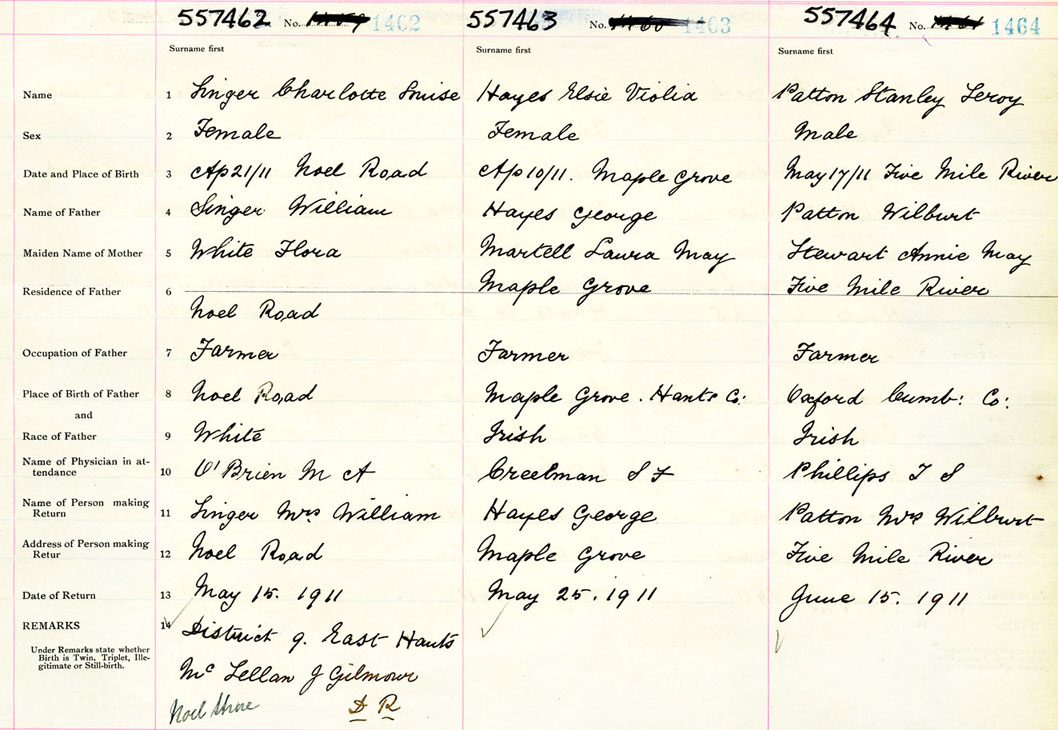 557462 No. 1402 557463 No. 1403 557464 No. 1464
Surname first Surname first Surname first
Name 1 Singer Charlotte Louise Hayes Elsie Violia Patton Stanley Leroy
Sex 2 Female Female Male
Date and Place of Birth 3 Ap 21/11 Noel Road Ap 10/11. Maple Grove May 17/11 Five Mile River
Name of Father 4 Singer William Hayes George Patton Wilburt
Maiden Name of Mother 5 White Flora Martell Laura May Stewart Annie May
Residence of Father 6 Maple Grove Five Mile River
Noel Road
Occupation of Father 7 Farmer Farmer Farmer
Place of Birth of Father 8 Noel Road Maple Grove. Hants Co: Oxford Cumb: Co:
and
Race of Father 9 White Irish Irish
Name of Physician in at-
tendance 10 O'Brien M A Creelman S F Phillips T S
Name of Person making
Return 11 Singer Mrs William Hayes George Patton Mrs Wilburt
Address of Person making
Retur 12 Noel Road Maple Grove Five Mile River
Date of Return 13 May 15. 1911 May 25. 1911 June 15. 1911
REMARKS 14 District 9. East Hants
Under Remarks state whether
Birth is Twin, Triplet, Ille-
gitimate or Still-birth.
Mc Lellan J Gilmour
Noel Shore D R